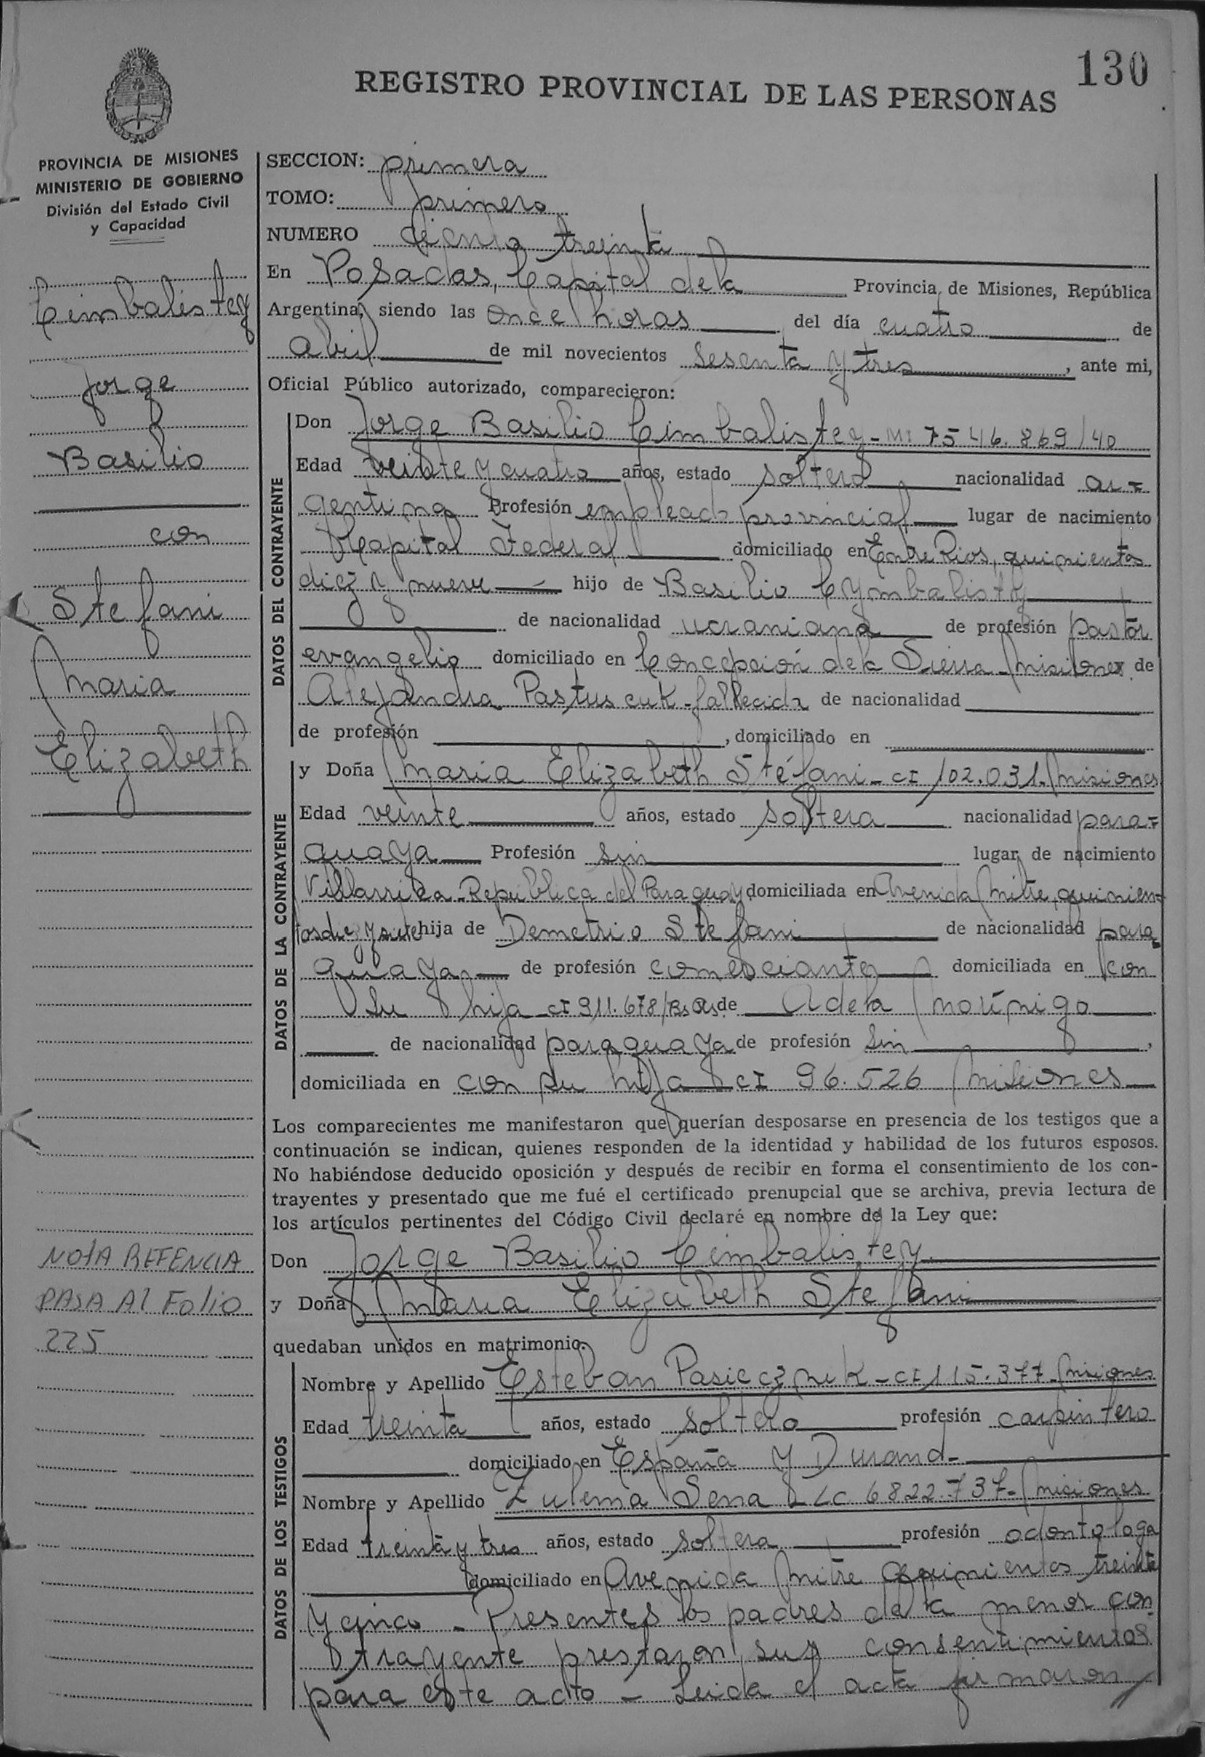 130
REGISTRO PROVINCIAL DE LAS PERSONAS
PROVINCIA DE MISIONES
MINISTERIO DE GOBIERNO
División del Estado Civil
y Capacidad
Cimbalistey
Jorge
Basilio
con
Stefani
Maria
Elizabeth
NOTA REFENCIA
PASA Al Folio
225
SECCION: primera
TOMO: primero
NUMERO ciento treinta
En Posadas, Capital dela Provincia de Misiones, República
Argentina, siendo las once horas del día cuatro de
Abril de mil novecientos sesenta y tres, ante mi,
Oficial Público autorizado, comparecieron:
DATOS DEL CONTRAYENTE
Don Jorge Basilio Cimbalistey - MI 7546.869/40
Edad veinte y cuatro años, estado soltero nacionalidad ar=
gentina Profesión empleado provincial lugar de nacimiento
Capital Federal domiciliado en Entre Rios, quinientos
diez y nueve hijo de Basilio Cymbalisty
de nacionalidad ucraniana de profesión pastor
evangelio domiciliado en Concepción dela Sierra - Misiones de
Alejandra Pastuscuk - fallecida de nacionalidad
de profesión , domiciliado en
DATOS DE LA CONTRAYENTE
y Doña Maria Elizabeth Stéfani - CI 102.031 - Misiones
Edad veinte años, estado soltera nacionalidad para=
guaya Profesión sin lugar de nacimiento
Villarrika - República del Paraguay domiciliada en Avenida Mitre, quinien=
tos diez y siete hija de Demetrio Stefani de nacionalidad para
guaya de profesión comerciante domiciliada en con
su hija CI 911.678/Bs As de Adela Morínigo
de nacionalidad paraguaya de profesión sin ,
domiciliada en con su hija CI 96.526 Misiones
Los comparecientes me manifestaron que querían desposarse en presencia de los testigos que a
continuación se indican, quienes responden de la identidad y habilidad de los futuros esposos.
No habiéndose deducido oposición y después de recibir en forma el consentimiento de los con-
trayentes y presentado que me fué el certificado prenupcial que se archiva, previa lectura de
los artículos pertinentes del Código Civil declaré en nombre de la Ley que:
Don Jorge Basilio Cimbalistey
y Doña Maria Elizabeth Stefani
quedaban unidos en matrimonio.
DATOS DE LOS TESTIGOS
Nombre y Apellido Esteban Pasiecznik - CI 115.377 - Misiones
Edad treinta años, estado soltero profesión carpintero
domiciliado en España y Durand -
Nombre y Apellido Zulema Sena LC 6822.737 - Misiones
Edad treinta y tres años, estado soltera profesión odontologa
domiciliado en Avenida Mitre quinientos treinta
y cinco - Presentes los padres de la menor con
trayente prestaron sus consentimientos
para este acto - Leida el acta firmaron